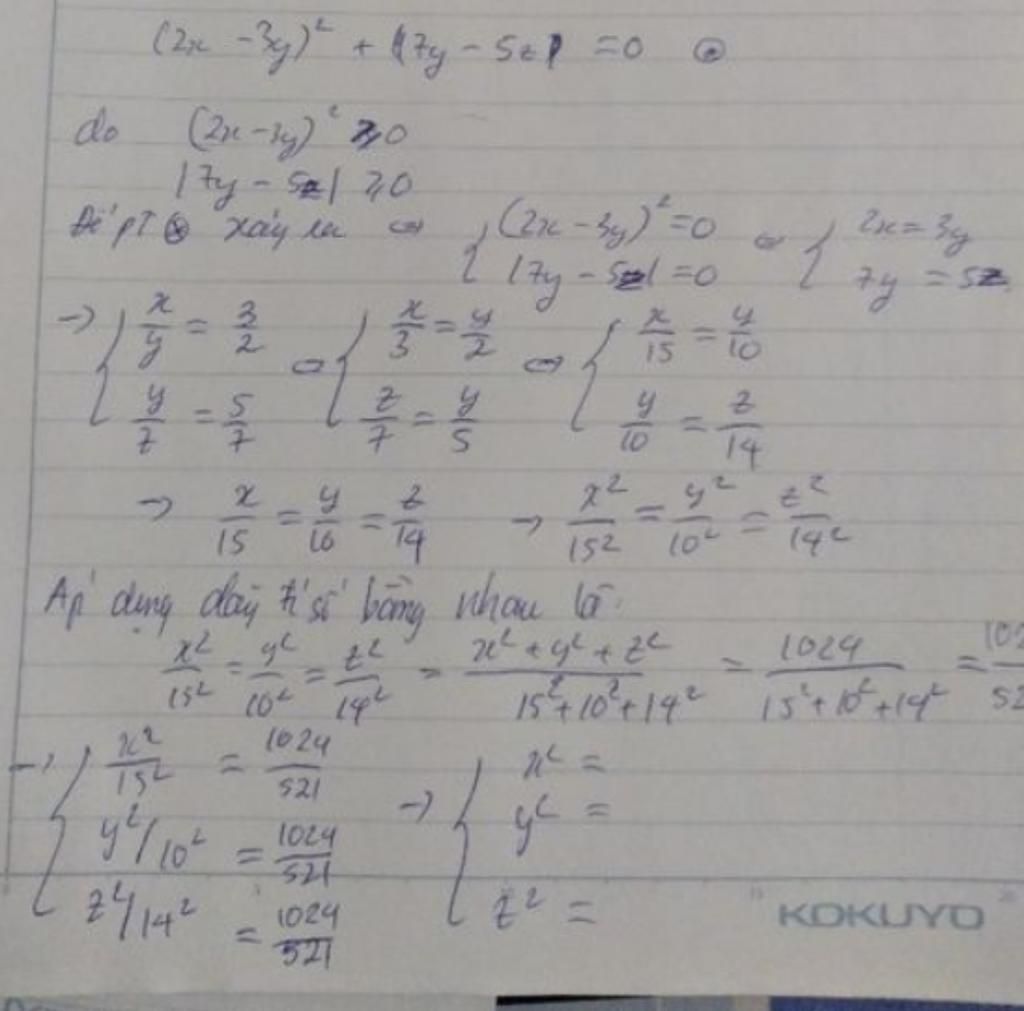 (2x - 3y)² + |7y - 5z| = 0 ⊛
do (2x - 3y)² ≥ 0
|7y - 5z| ≥ 0
Để pT ⊛ xảy ra ⇔ { (2x - 3y)² = 0 ⇔ { 2x = 3y
|7y - 5z| = 0 7y = 5z
→ { x/y = 3/2 ⇔ { x/3 = y/2 ⇔ { x/15 = y/10
y/z = 5/7 z/7 = y/5 y/10 = z/14
→ x/15 = y/10 = z/14 → x²/15² = y²/10² = z²/14²
Áp dụng dãy tỉ số bằng nhau là:
x²/15² = y²/10² = z²/14² = (x² + y² + z²)/(15² + 10² + 14²) = 1024/(15² + 10² + 14²) = 102/52
→ { x²/15² = 1024/521 → { x² =
y²/10² = 1024/521 y² =
z²/14² = 1024/521 z² =
KOKUYO